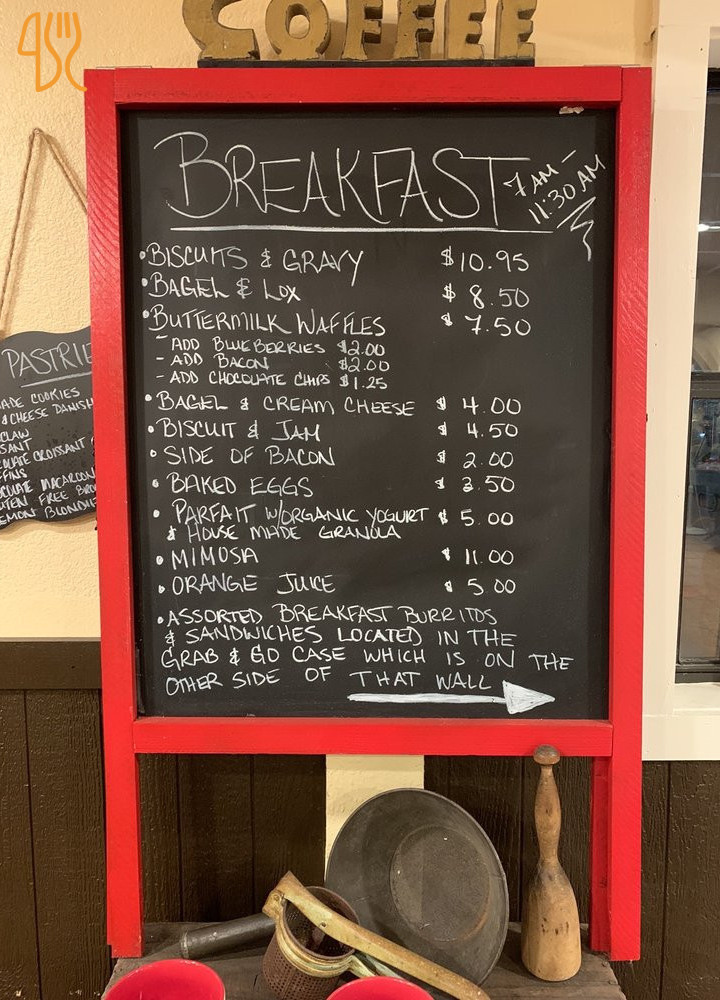 COFFEE
BREAKFAST
7 AM –
11:30 AM
• BISCUITS & GRAVY $10.95
• BAGEL & LOX $ 8.50
• BUTTERMILK WAFFLES $ 7.50
- ADD BLUEBERRIES $2.00
- ADD BACON $2.00
- ADD CHOCOLATE CHIPS $1.25
• BAGEL & CREAM CHEESE $ 4.00
• BISCUIT & JAM $ 4.50
• SIDE OF BACON $ 2.00
• BAKED EGGS $ 3.50
• PARFAIT W/ORGANIC YOGURT $ 5.00
& HOUSE MADE GRANOLA
• MIMOSA $ 11.00
• ORANGE JUICE $ 5.00
• ASSORTED BREAKFAST BURRITOS
& SANDWICHES LOCATED IN THE
GRAB & GO CASE WHICH IS ON THE
OTHER SIDE OF THAT WALL
PASTRIE
ADE COOKIES
& CHEESE DANISH
CLAW
SANT
OLATE CROISSANT
FFINS
OCOLATE MACAROON
UTEN FREE BRO
EMON BLONDIE